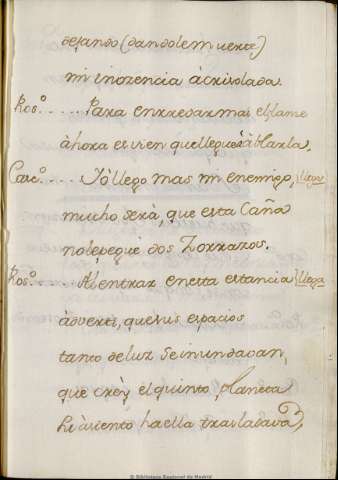 dejando (dandole muerte)
mi inozencia àcrisolada.
Ros.º .... Para enrredar mas el lame
àhora es vien que llegue à àblarla.
Carc.º .... Yò llego mas mi enemigo, llega
mucho serà, que esta Caña
no le pegue dos Zorrazos.
Ros.º .... Al entrar en esta estancia llega
àdverti, que sus espacios
tanto de luz se inundavan,
que creỳ el quinto planeta
su àsiento ha ella trasladava,
© Biblioteca Nacional de Madrid